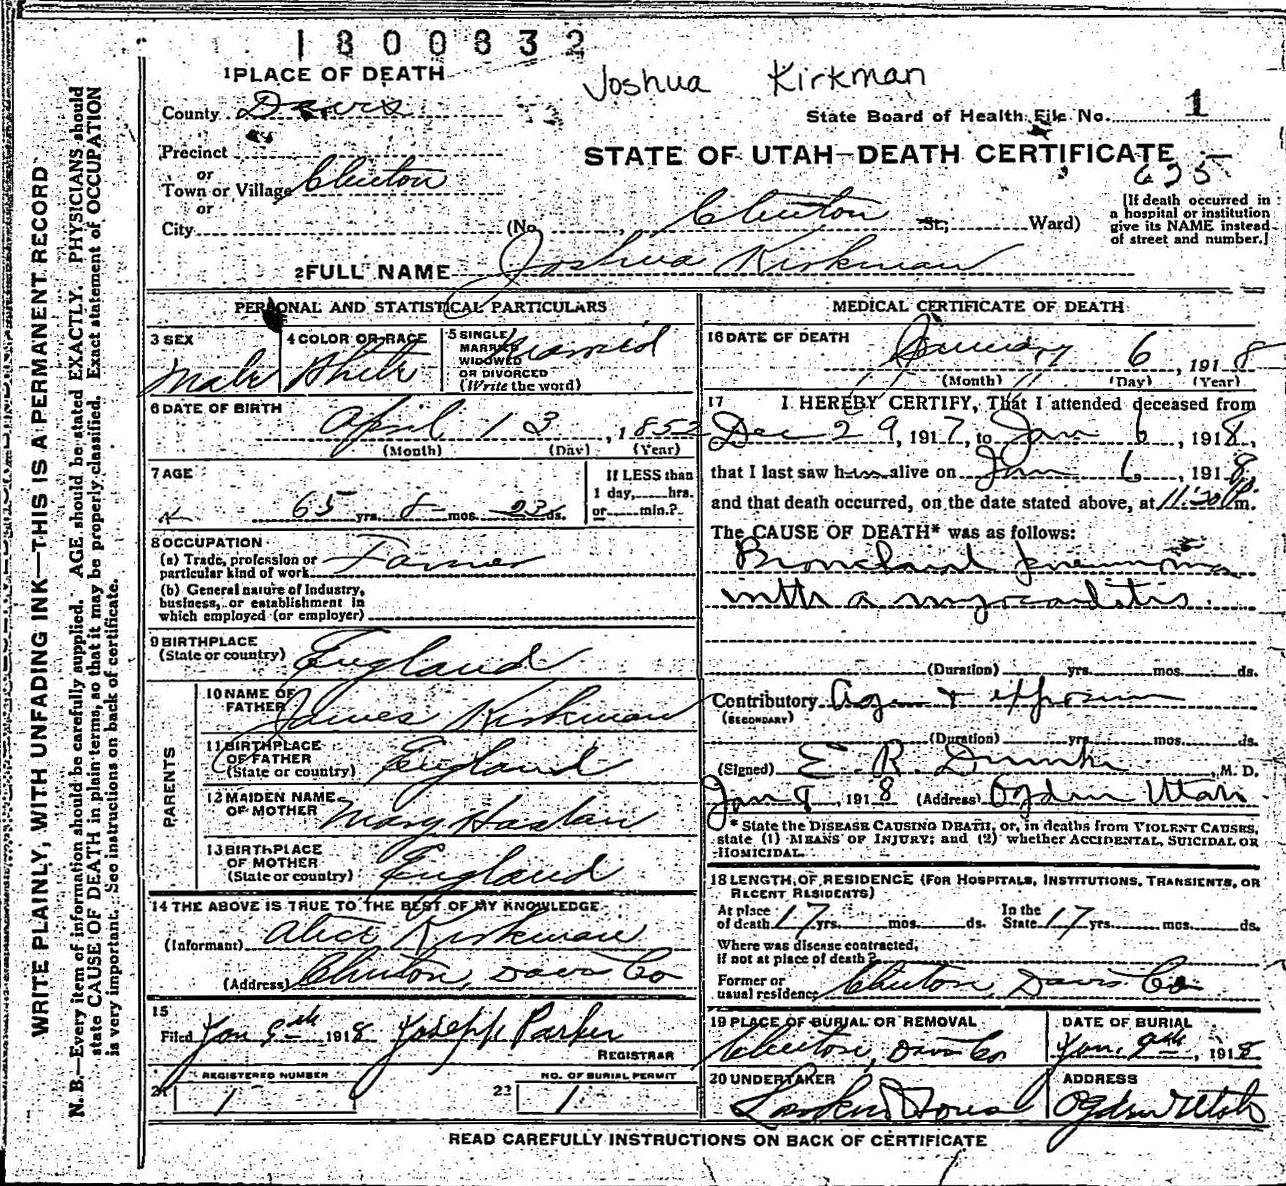 1800832
Joshua Kirkman
1 PLACE OF DEATH
County Davis
State Board of Health File No. 1
Precinct
or
Town or Village Clinton
or
City
STATE OF UTAH—DEATH CERTIFICATE
625
(No. Clinton St.; Ward)
[If death occurred in
a hospital or institution
give its NAME instead
of street and number.]
2 FULL NAME Joshua Kirkman
PERSONAL AND STATISTICAL PARTICULARS
3 SEX
Male
4 COLOR OR RACE
White
5 SINGLE
MARRIED
WIDOWED
OR DIVORCED
(Write the word)
Married
6 DATE OF BIRTH
April 13, 1852
(Month) (Day) (Year)
7 AGE
65 yrs. 8 mos. 23 ds.
If LESS than
1 day, hrs.
or min.?
8 OCCUPATION
(a) Trade, profession or
particular kind of work Farmer
(b) General nature of Industry,
business, or establishment in
which employed (or employer)
9 BIRTHPLACE
(State or country) England
PARENTS
10 NAME OF
FATHER James Kirkman
11 BIRTHPLACE
OF FATHER
(State or country) England
12 MAIDEN NAME
OF MOTHER Mary Haslam
13 BIRTHPLACE
OF MOTHER
(State or country) England
14 THE ABOVE IS TRUE TO THE BEST OF MY KNOWLEDGE
(Informant) Alice Kirkman
(Address) Clinton, Davis Co
15
Filed Jan 9th 1918 Joseph Parker
REGISTRAR
REGISTERED NUMBER
21 1
NO. OF BURIAL PERMIT
22 1
MEDICAL CERTIFICATE OF DEATH
16 DATE OF DEATH
January 6, 1918
(Month) (Day) (Year)
17 I HEREBY CERTIFY, That I attended deceased from
Dec 29, 1917, to Jan 6, 1918,
that I last saw him alive on Jan 6, 1918
and that death occurred, on the date stated above, at 11:20 P.m.
The CAUSE OF DEATH* was as follows:
Bronchial pneumonia
with a myocarditis
(Duration) yrs. mos. ds.
Contributory Age & exposure
(SECONDARY)
(Duration) yrs. mos. ds.
(Signed) E. R. , M. D.
Jan 8, 1918 (Address) Ogden Utah
* State the DISEASE CAUSING DEATH, or, in deaths from VIOLENT CAUSES,
state (1) MEANS OF INJURY; and (2) whether ACCIDENTAL, SUICIDAL OR
HOMICIDAL.
18 LENGTH OF RESIDENCE (FOR HOSPITALS, INSTITUTIONS, TRANSIENTS, OR
RECENT RESIDENTS)
At place
of death 17 yrs. mos. ds.
In the
State 17 yrs. mos. ds.
Where was disease contracted,
if not at place of death?
Former or
usual residence Clinton, Davis Co
19 PLACE OF BURIAL OR REMOVAL
Clinton, Davis Co
DATE OF BURIAL
Jan. 9th, 1918
20 UNDERTAKER
Larkin & Sons
ADDRESS
Ogden Utah
READ CAREFULLY INSTRUCTIONS ON BACK OF CERTIFICATE
WRITE PLAINLY, WITH UNFADING INK—THIS IS A PERMANENT RECORD
N. B.—Every item of information should be carefully supplied. AGE should be stated EXACTLY. PHYSICIANS should
state CAUSE OF DEATH in plain terms, so that it may be properly classified. Exact statement of OCCUPATION
is very important. See instructions on back of certificate.